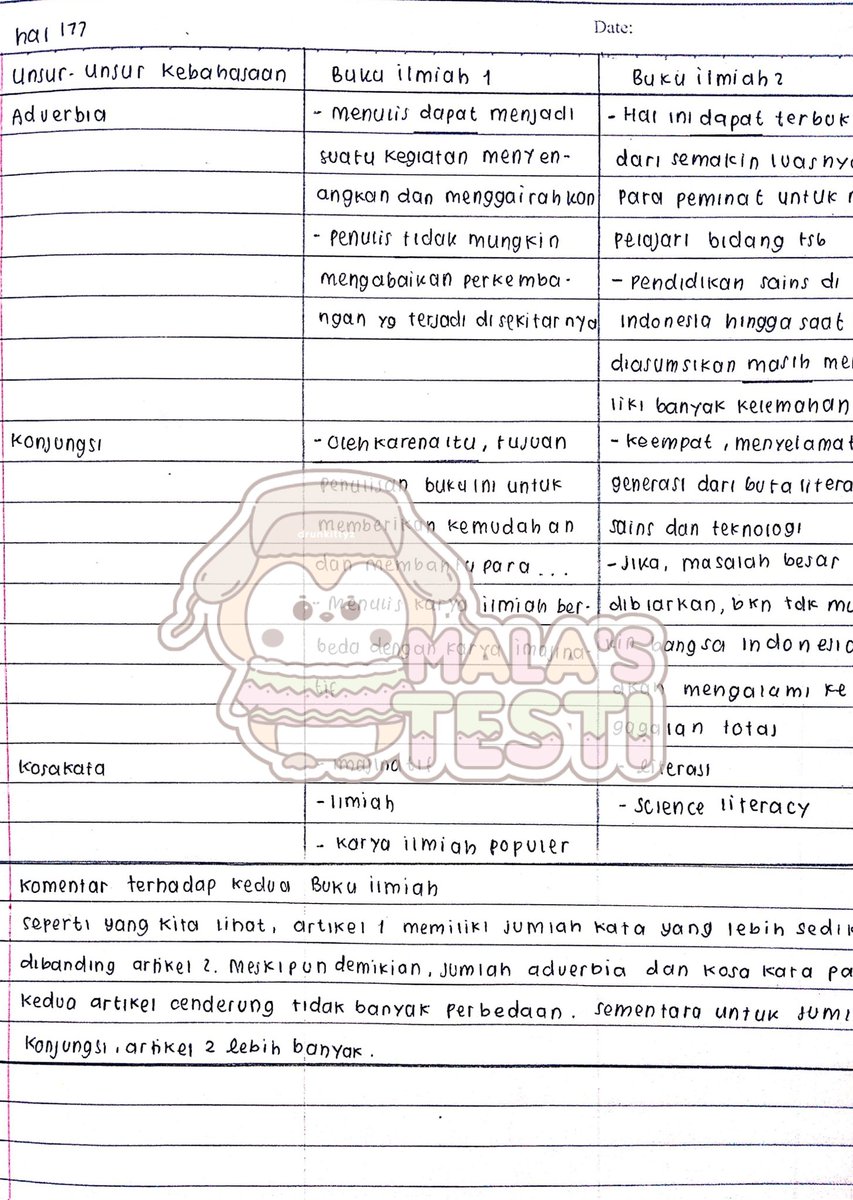 hal 177
Date:
Unsur-unsur Kebahasaan
Buku ilmiah 1
Buku ilmiah 2
Adverbia
- Menulis dapat menjadi
suatu kegiatan menyen-
angkan dan menggairahkan
- Penulis tidak mungkin
mengabaikan perkemba-
ngan yg terjadi disekitarnya
- Hal ini dapat terbuk
dari semakin luasnya
para peminat untuk
pelajari bidang tsb
- Pendidikan sains di
Indonesia hingga saat
diasumsikan masih me
liki banyak kelemahan
Konjungsi
- Oleh karena itu, tujuan
penulisan buku ini untuk
memberikan kemudahan
dan membantu para ...
- Menulis karya ilmiah ber-
beda dengan karya imajina-
tif
- keempat, menyelamat
generasi dari buta litera
sains dan teknologi
- Jika, masalah besar
dibiarkan, bkn tdk mu
kin bangsa Indonesia
akan mengalami ke
gagalan total
Kosakata
- Imajinatif
- Ilmiah
- Karya ilmiah populer
- Literasi
- Science literacy
Komentar terhadap kedua Buku ilmiah
seperti yang kita lihat, artikel 1 memiliki jumlah kata yang lebih sedik
dibanding artikel 2. Meskipun demikian, jumlah adverbia dan kosa kata pa
kedua artikel cenderung tidak banyak perbedaan. Sementara untuk juml
Konjungsi, artikel 2 lebih banyak.
drunkittyz
MALA'S
TESTI